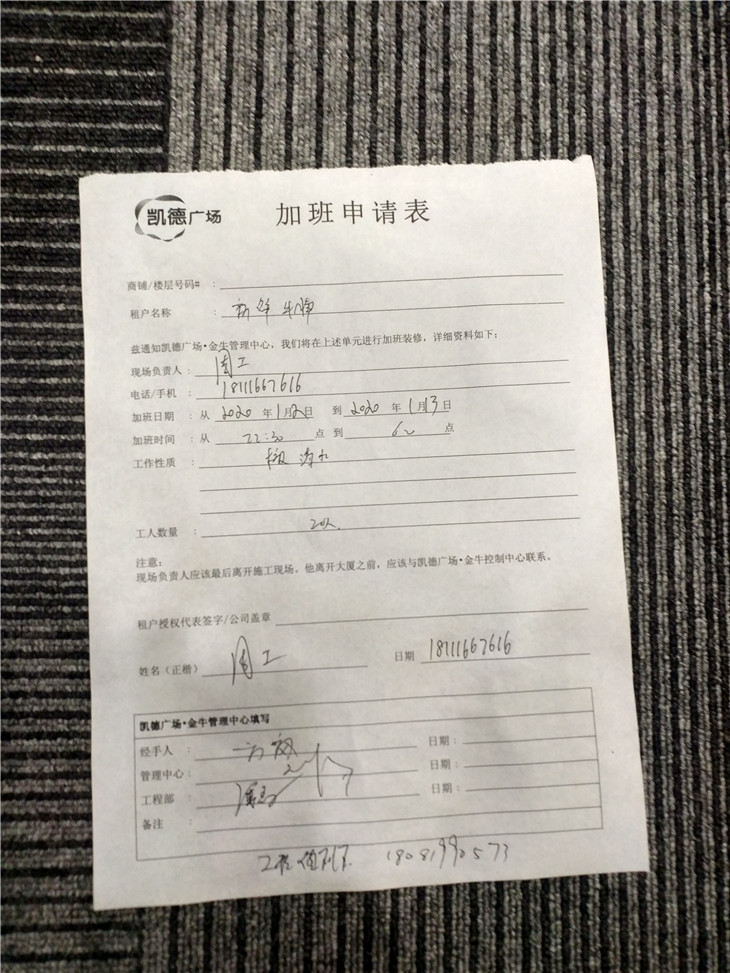 凯德广场 加班申请表
商铺/楼层号码# :
租户名称 :
兹通知凯德广场•金牛管理中心，我们将在上述单元进行加班装修，详细资料如下：
现场负责人： 周工
电话/手机 : 18111667616
加班日期 : 从 2020 年 1 月 12 日 到 2020 年 1 月 13 日
加班时间 : 从 22:30 点 到 6:00 点
工作性质 :
工人数量 : 2人
注意：
现场负责人应该最后离开施工现场。他离开大厦之前，应该与凯德广场•金牛控制中心联系。
租户授权代表签字/公司盖章
姓名（正楷） 周工 日期 18111667616
凯德广场•金牛管理中心填写
经手人 : 日期：
管理中心： 日期：
工程部 : 日期：
备注 :
工程值班 18081990573